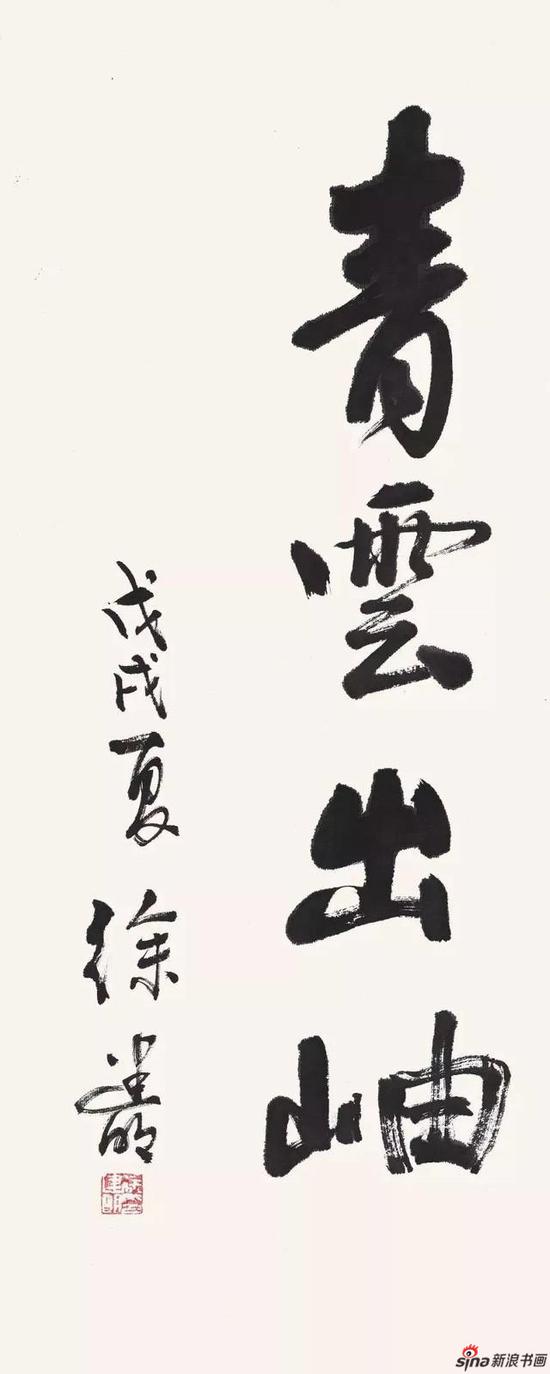 青雲出岫
戊戌夏
徐
sina新浪书画